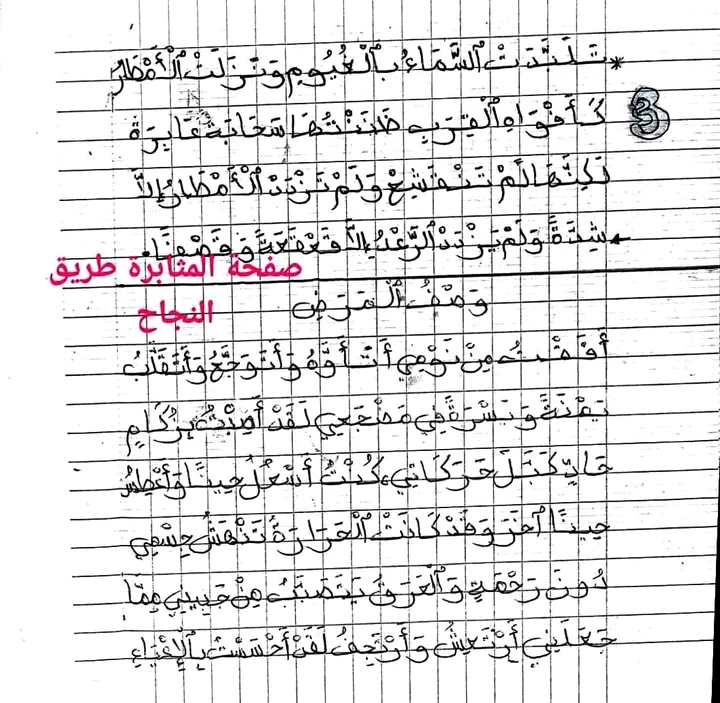 * تَلَبَّدَتْ السَّمَاءُ بِالْغُيُومِ وَنَزَلَتْ الْأَمْطَارُ
3
كَأَفْوَاهِ الْقِرَبِ ظَنَنْتُهَا سَحَابَةً عَابِرَةً
لَكِنَّهَا لَمْ تَنْقَشِعْ وَلَمْ تَزْدَدْ الْأَمْطَارُ إِلاَّ
شِدَّةً وَلَمْ يَزْدَدْ الرَّعْدُ إِلاَّ قَعْقَعَةً وَقَصْفًا.
صفحة المثابرة طريق
النجاح
وَصْفُ الْمَرَضِ
أَفَقْتُ مِنْ نَوْمِي أَتَأَوَّهُ وَأَتَوَجَّعُ وَأَتَقَلَّبُ
يَمْنَةً وَيَسْرَةً فِي مَضْجَعِي لَقَدْ أُصِبْتُ بِزُكَامٍ
حَادٍّ كَبَّلَ حَرَكَاتِي، كُنْتُ أَسْعُلُ حِينًا وَأَعْطِسُ
حِينًا آخَرَ وَقَدْ كَانَتْ الْحَرَارَةُ تَنْهَشُ جِسْمِي
دُونَ رَحْمَةٍ وَالْعَرَقُ يَتَصَبَّبُ مِنْ جَبِينِي مِمَّا
جَعَلَنِي أَرْتَعِشُ وَأَرْتَجِفُ لَقَدْ أَحْسَسْتُ بِالْإِعْيَاءِ